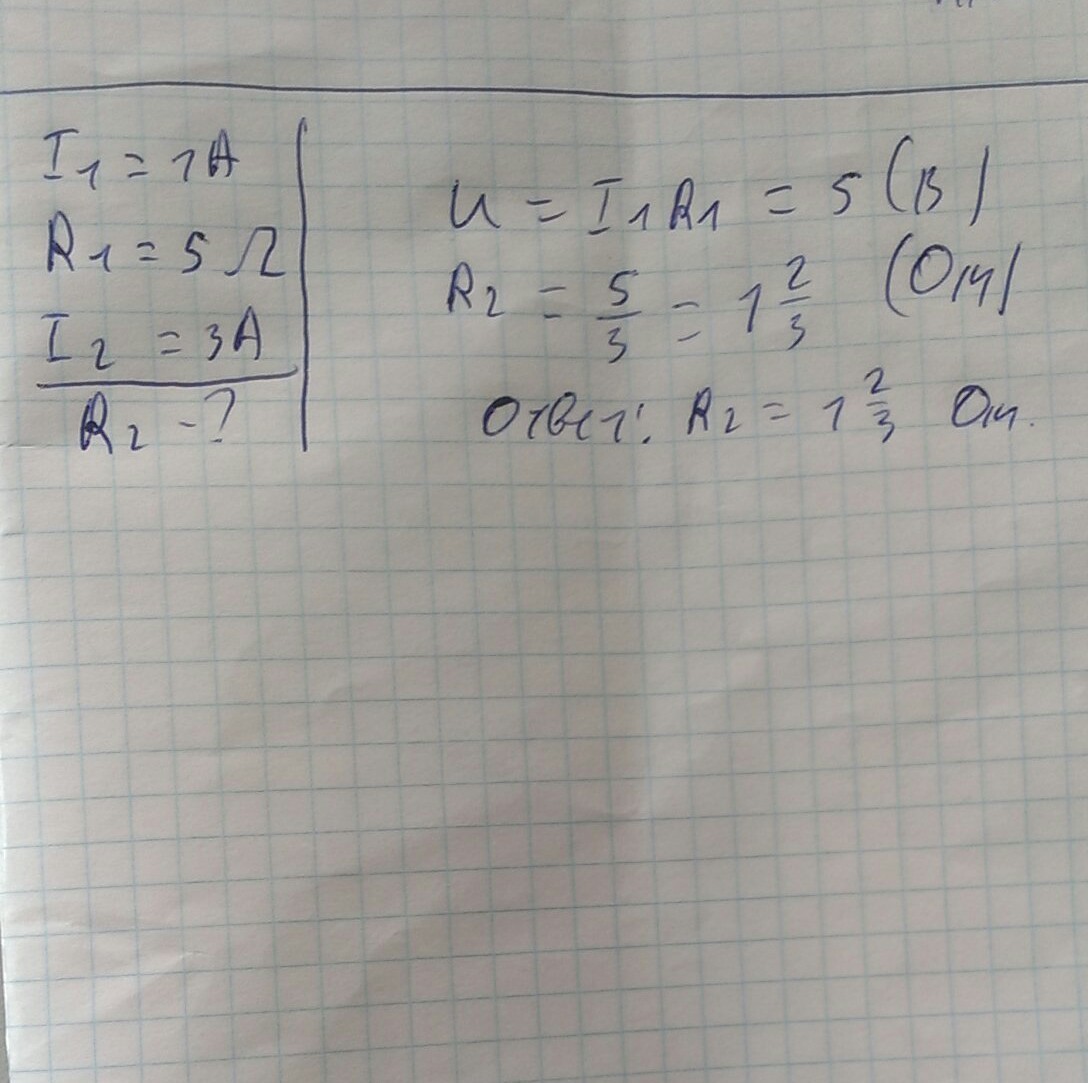 I₁ = 1A
R₁ = 5 Ω
I₂ = 3A
R₂ - ?
U = I₁R₁ = 5 (В)
R₂ = 5/3 = 1 2/3 (Ом)
Ответ: R₂ = 1 2/3 Ом.